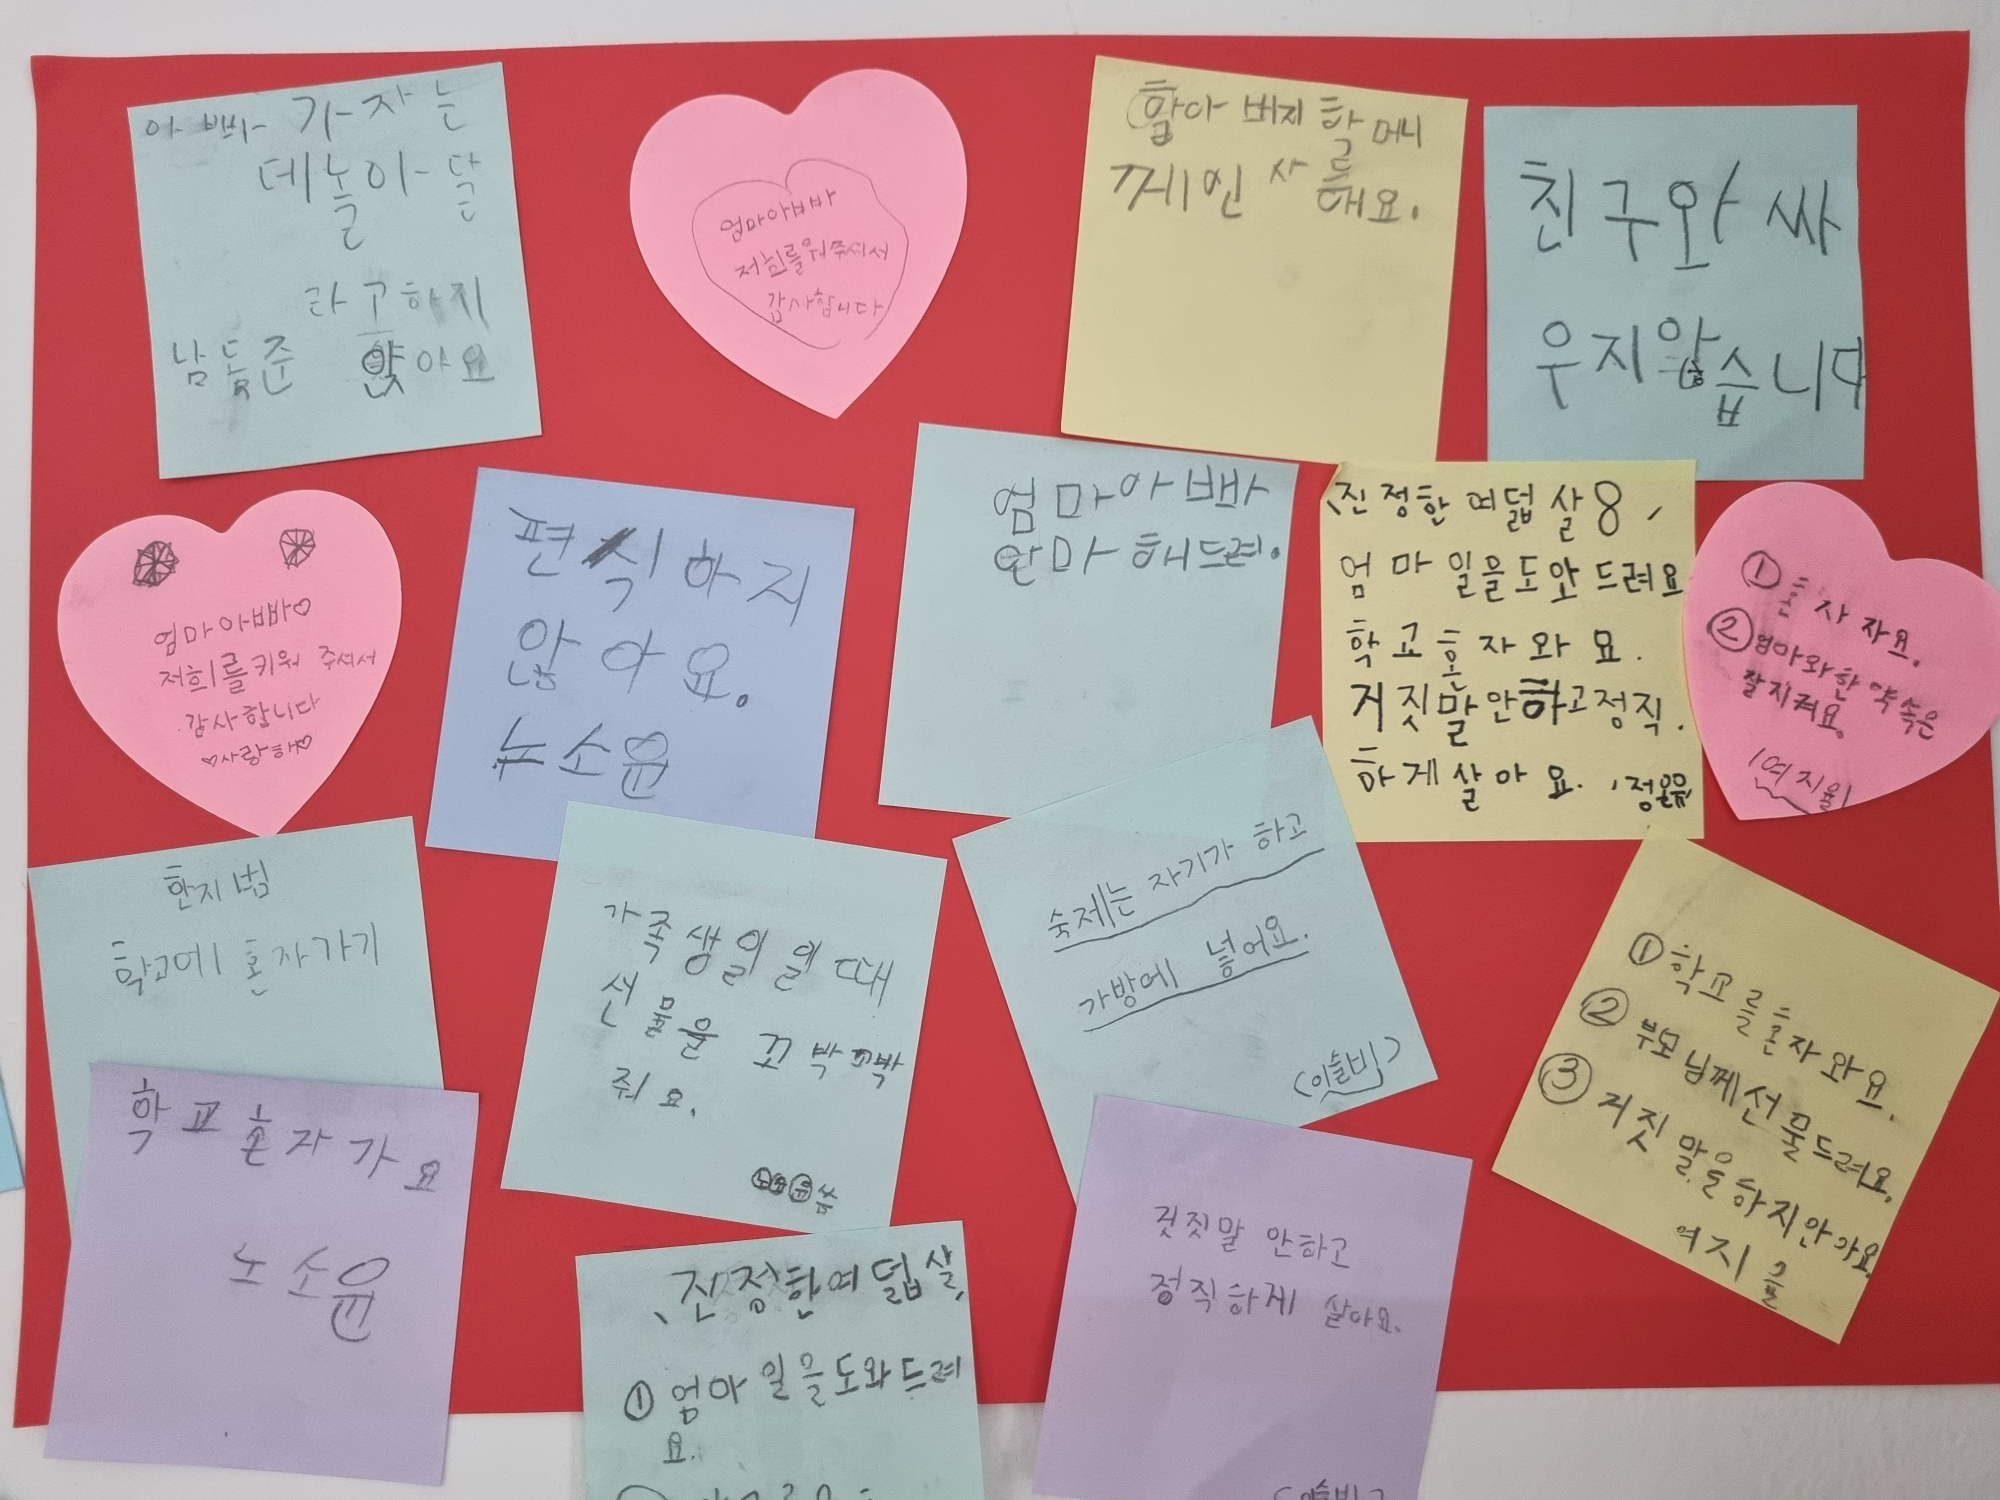 아빠가 자는
데 놀아달
라고 하지
남득준 않아요
엄마아빠빠
저희를 워주셔서
감사합니다
할아버지 할머니
께 인사를
해요.
친구와 싸
우지 않습니다
엄마아빠♡
저희를 키워 주셔서
감사합니다
♡사랑해♡
편식하지
않아요.
노소윤
엄마아빠
안마해드려.
진정한 여덟 살 8
엄마 일을 도와 드려요
학교 혼자와요.
거짓말 안하고 정직.
하게 살아요.
① 혼자 자요.
② 엄마와 한 약속은
잘 지켜요.
여지율
한지범
학교에 혼자가기
가족 생일일 때
선물을 꼬박꼬박
줘요.
노소윤 씀
숙제는 자기가 하고
가방에 넣어요.
<이슬비>
① 학교를 혼자 와요.
② 부모님께 선물드려요.
③ 거짓말을 하지 안아요
여지율
학교 혼자가요
노소윤
진정한 여덟 살,
① 엄마 일을 도와드려
요.
것짓말 안하고
정직하게 살아요.
<이슬비>